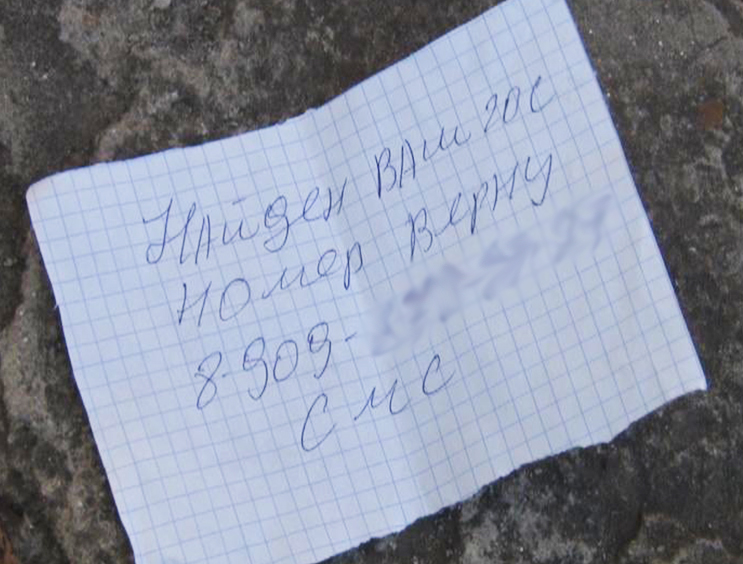 Найден ваш гос
номер верну
8-909-
смс